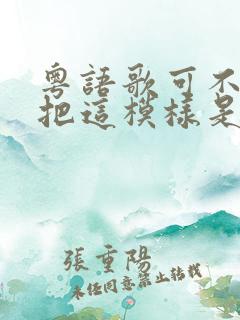 粵語歌可不
把這模樣是
張重陽
未任同意禁止转载